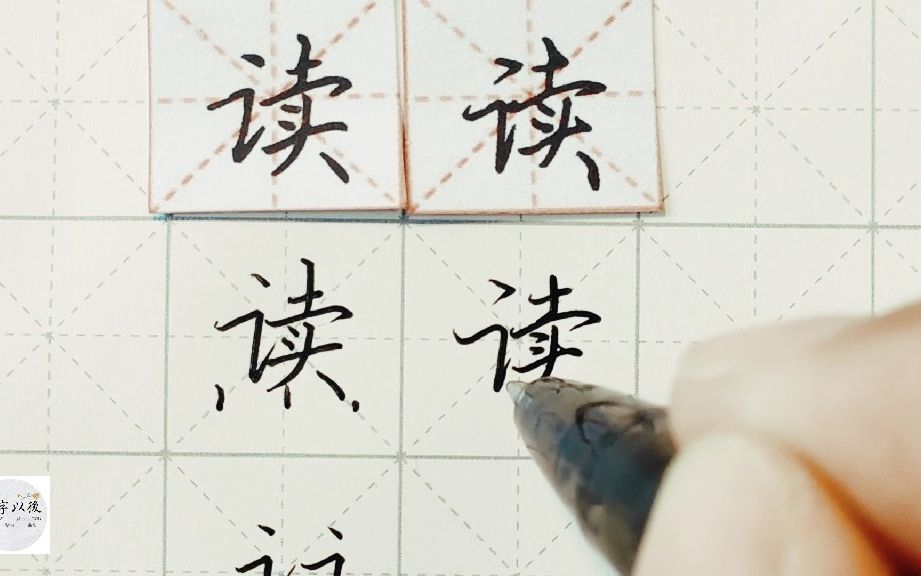 读 读
读 读
字以後